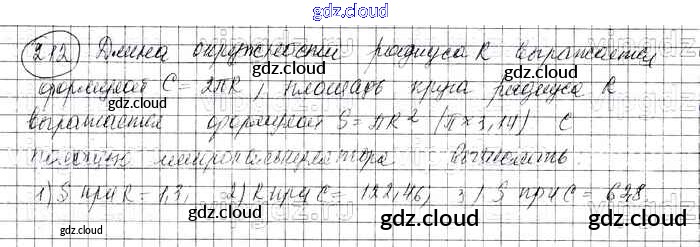 gdz.cloud
212 Длина окружности радиуса R выражается
формулой C = 2πR, площадь круга радиуса R
выражается формулой S = πR² (π ≈ 3,14) С
помощью микрокалькулятора вычислить
1) S при R = 1,3, 2) R при C = 122,46, 3) S при C = 628
gdz.cloud gdz.cloud gdz.cloud
gdz.cloud gdz.cloud gdz.cloud